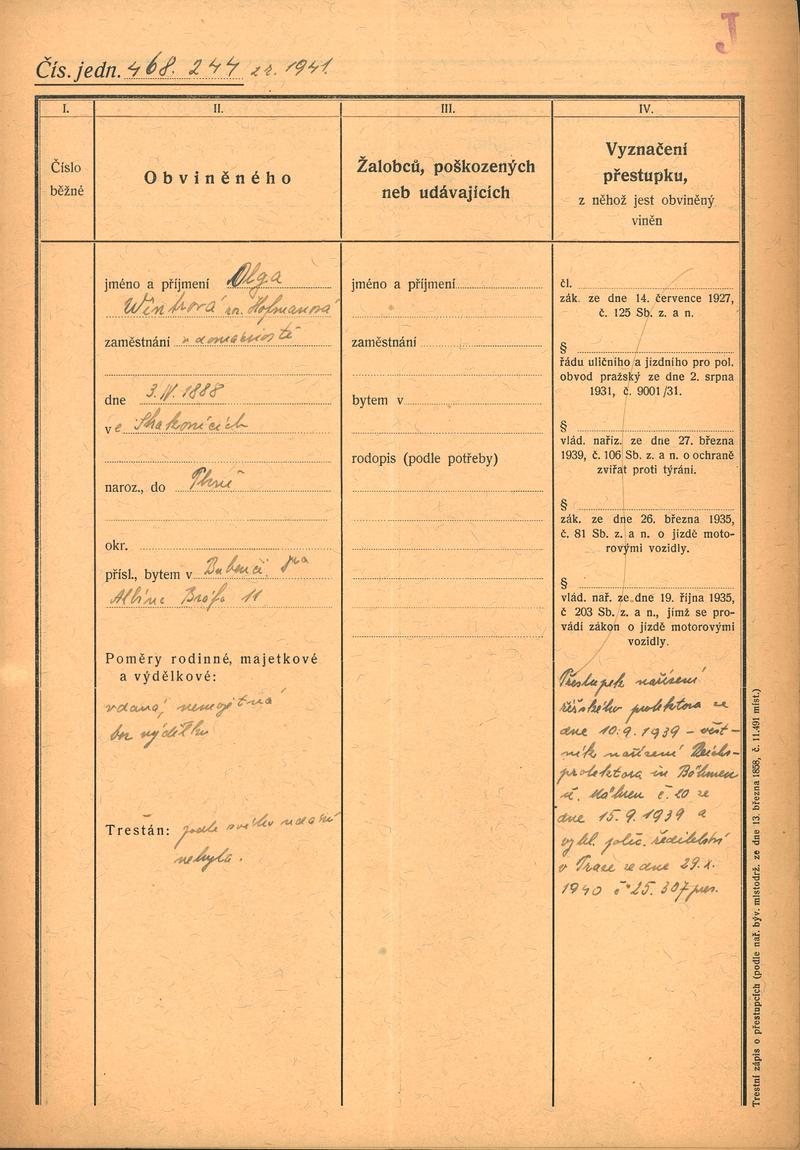 J
Čís. jedn. 468.244 z r. 1941.
I.
Číslo
běžné
II.
Obviněného
III.
Žalobců, poškozených
neb udávajících
IV.
Vyznačení
přestupku,
z něhož jest obviněný
viněn
jméno a příjmení Olga
roz. Hofmanová
zaměstnání v domácnosti
dne 3.IV.1888
ve Strakonicích
naroz., do
okr.
přísl., bytem v Bubenči,
Albína Bráfa 11
Poměry rodinné, majetkové
a výdělkové:
vdaná, nemajetná
bez výdělku
Trestán: podle svého udání
nebyla.
jméno a příjmení
zaměstnání
bytem v
rodopis (podle potřeby)
čl.
zák. ze dne 14. července 1927,
č. 125 Sb. z. a n.
§
řádu uličního a jízdního pro pol.
obvod pražský ze dne 2. srpna
1931, č. 9001/31.
§
vlád. naříz. ze dne 27. března
1939, č. 106 Sb. z. a n. o ochraně
zvířat proti týrání.
§
zák. ze dne 26. března 1935,
č. 81 Sb. z. a n. o jízdě moto-
rovými vozidly.
§
vlád. nař. ze dne 19. října 1935,
č 203 Sb. z. a n., jímž se pro-
vádí zákon o jízdě motorovými
vozidly.
Přestupek nařízení
říšského protektora ze
dne 10.9.1939 - věst-
ník nařízení Reichs-
protektora in Böhmen
u. Mähren č. 20 ze
dne 15.9.1939 a
vyhl. polic. ředitelství
v Praze ze dne 29.X.
1940 č. 25.307 pres.
Trestní zápis o přestupcích (podle nař. býv. místodrž. ze dne 13. března 1858, č. 11.491 míst.)